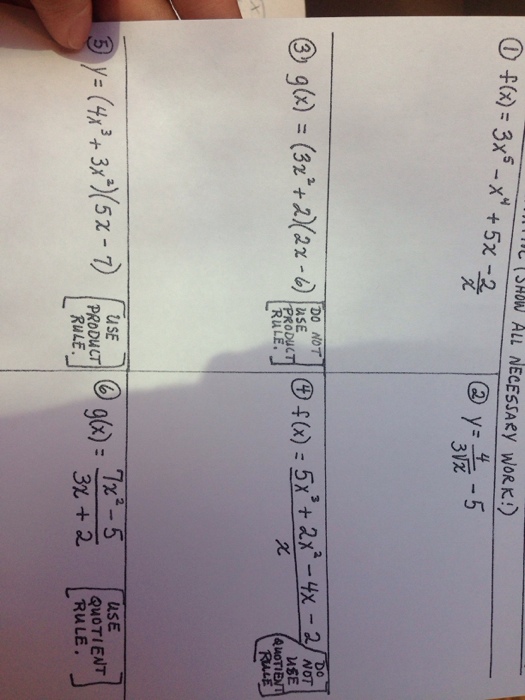 (SHOW ALL NECESSARY WORK!)
① f(x) = 3x⁵ - x⁴ + 5x - 2/x
② y = 4/(3√x) - 5
③ g(x) = (3x² + 2)(2x - 6)
[DO NOT
USE
PRODUCT
RULE.]
④ f(x) = (5x³ + 2x² - 4x - 2)/x
[DO
NOT
USE
QUOTIENT
RULE]
⑤ y = (4x³ + 3x²)(5x - 7)
[USE
PRODUCT
RULE.]
⑥ g(x) = (7x² - 5)/(3x + 2)
[USE
QUOTIENT
RULE.]